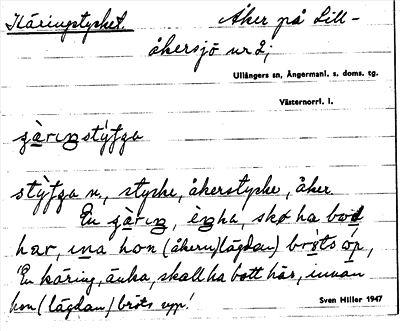 Käringstycket. Åker på Lill-
åkersjö nr 2;
Ullångers sn, Ångermanl. s. doms. tg.
Västernorrl. l.
gàrıŋstýʃga
stỳʃga n., stycke, åkerstycke, åker
En gàrıŋ, èŋka, skø ha bod
har, ına hon (åkern/lägdan) brøts óp,
'En käring, änka, skall ha bott här, innan
hon (lägdan) bröts upp.'
Sven Hiller 1947